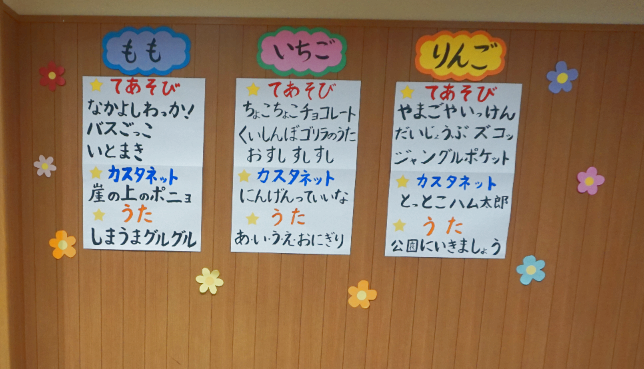 もも
てあそび
なかよしわっか!
バスごっこ
いとまき
カスタネット
崖の上のポニョ
うた
しまうまグルグル
いちご
てあそび
ちょこちょこチョコレート
くいしんぼゴリラのうた
おすしすしすし
カスタネット
にんげんっていいな
うた
あ・い・う・え・おにぎり
りんご
てあそび
やまごやいっけん
だいじょうぶ ズコッ
ジャングルポケット
カスタネット
とっとこハム太郎
うた
公園にいきましょう